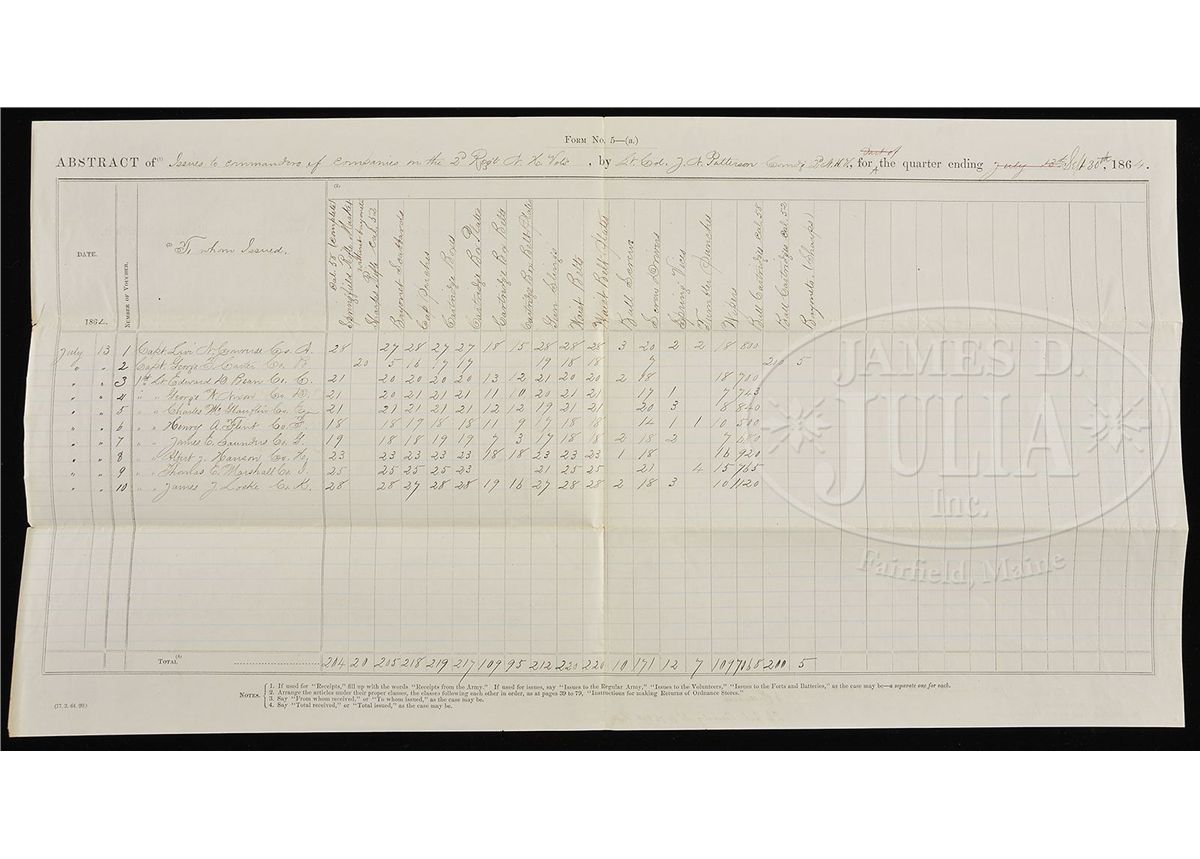 FORM NO. 5—(a.)
ABSTRACT of (1) Issues to commanders of companies in the 2d Regt N H Vols, by Lt. Col. J. N. Patterson Comdg 2d N.H.V., for part of the quarter ending July 13th Sept 30th, 1864.
DATE.
NUMBER OF VOUCHER.
(3) To whom Issued.
(2)
Springfield Rifle Musket Cal. 58 (complete)
Sharps Rifle Cal. 52 without bayonet
Bayonet Scabbards
Cap Pouches
Cartridge Boxes
Cartridge Box Plates
Cartridge Box Belts
Cartridge Box Belt Plates
Gun Slings
Waist Belts
Waist Belt Plates
Ball Screws
Screw Drivers
Spring Vices
Tumbler Punches
Wipers
Ball Cartridges Cal. 58
Ball Cartridge Cal. 52
Bayonets (Sharps)
1864.
July 13 1 Capt Levi N. Converse Co. A. 28 27 28 27 27 18 15 28 28 28 3 20 2 2 18 800
" " 2 Capt George T. Carter Co. B 20 5 16 17 17 19 18 18 7 200 5
" " 3 1st Lt Edward D. Bean Co. C. 21 20 20 20 20 13 12 21 20 20 2 18 18 710
" " 4 " " George W. Co. D. 21 20 21 21 21 11 10 20 21 21 17 1 7 743
" " 5 " " Charles Co. E 21 21 21 21 21 12 12 19 21 21 20 3 8 840
" " 6 " " Henry A. Flint Co. F. 18 18 17 18 18 11 9 17 18 18 14 1 1 10 500
" " 7 " " James E. Saunders Co. G. 19 18 18 19 19 7 3 17 18 18 2 18 2 7 680
" " 8 " " Albert J. Hanson Co. H. 23 23 23 23 23 18 18 23 23 23 1 18 16 920
" " 9 " " Thomas E. Marshall Co. I. 25 25 25 25 23 21 25 25 21 4 15 765
" " 10 " " James J. Locke Co. K. 28 28 27 28 28 19 16 27 28 28 2 18 3 10 1120
TOTAL (4) 204 20 205 218 219 217 109 95 212 220 220 10 171 12 7 109 7065 200 5
NOTES. 1. If used for "Receipts," fill up with the words "Receipts from the Army." If used for issues, say "Issues to the Regular Army," "Issues to the Volunteers," "Issues to the Forts and Batteries," as the case may be—a separate one for each.
2. Arrange the articles under their proper classes, the classes following each other in order, as at pages 39 to 79, "Instructions for making Returns of Ordnance Stores."
3. Say "From whom received," or "To whom issued," as the case may be.
4. Say "Total received," or "Total issued," as the case may be.
(17. 3. 64. 90.)
JAMES D.
JULIA
Inc.
Fairfield, Maine